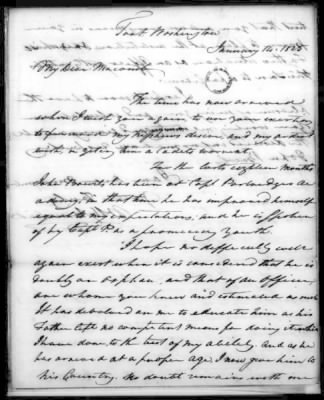 Fort Washington
January 14. 1825
My dear Macomb,
The time has now arrived
when I must
again to
my Nephews desire, and my
wish to get for him a Cadets warrant.
For the last eighteen months
John has been at Capt Partridges Ac
ademy, in that time he has improved himself
equal to my expectations, and he is spoken
of by Capt P. as a promising Youth.
I hope no difficulty will
again exist when it is considered that he is
doubly an Orphan, and that of an Officer,
one whom you knew and esteemed as such
It has devolved on me to educate him as his
Father left no competent means for doing it
I have done to the best of my ability. and as he
has arrived at a proper age, I now give him to
his Country. No doubt remains with me